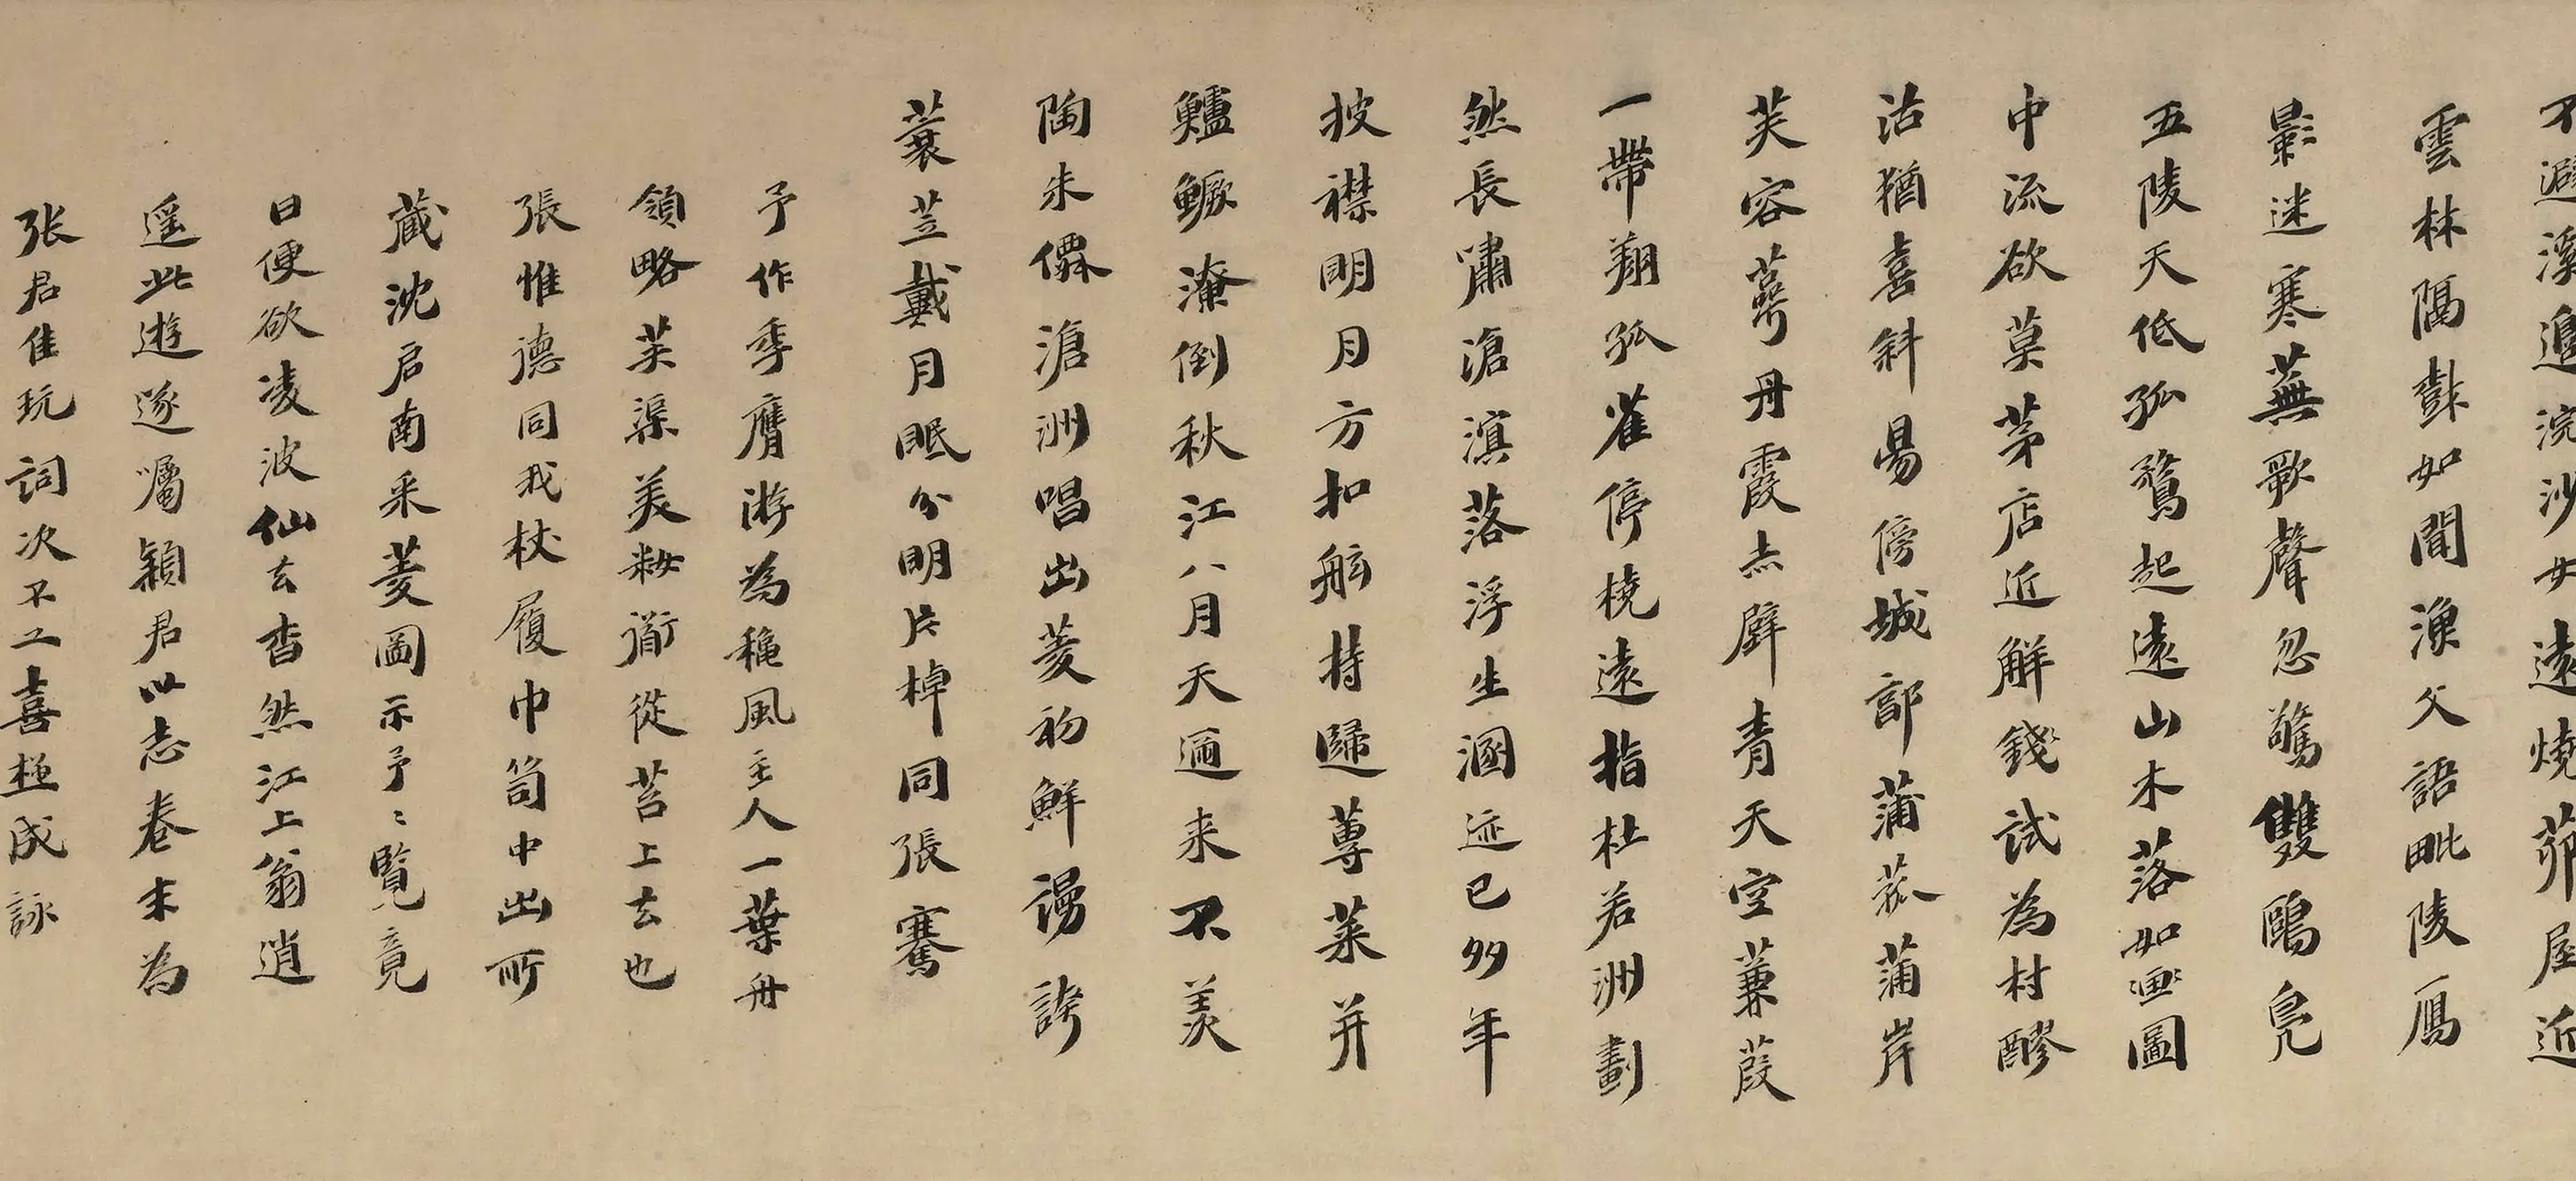 不避溪邊浣沙女遠燒茆屋近
雲林隔彭如聞漁父語毗陵鴈
影迷寒蕪歌聲忽驚雙鷗鳧
五陵天低孤鶩起遠山木落如畫圖
中流欲莫茅店近解錢試為村醪
沽猶喜斜昜傍城郭蒲菰蒲岸
芙容萼丹霞點壁青天空蒹葭
一帶翔孤雀停橈遠指杜若洲劃
然長嘯滄溟落浮生溷迹已多年
披襟明月方扣舷持歸蓴菜并
鱸鱖潦倒秋江八月天邇来不羨
陶朱僲滄洲唱出菱初鮮謾誇
蓑笠戴月眠分明片棹同張騫
予作季膺游為穐風主人一葉舟
領略芙渠美粧衜從苕上去也
張惟德同我杖履巾笥中出所
蔵沈启南采菱圖示予〻覧竟
日便欲凌波仙去杳然江上翁逍
遥此遊遂囑穎君以志卷末為
张君佳玩詞次不工喜極成詠